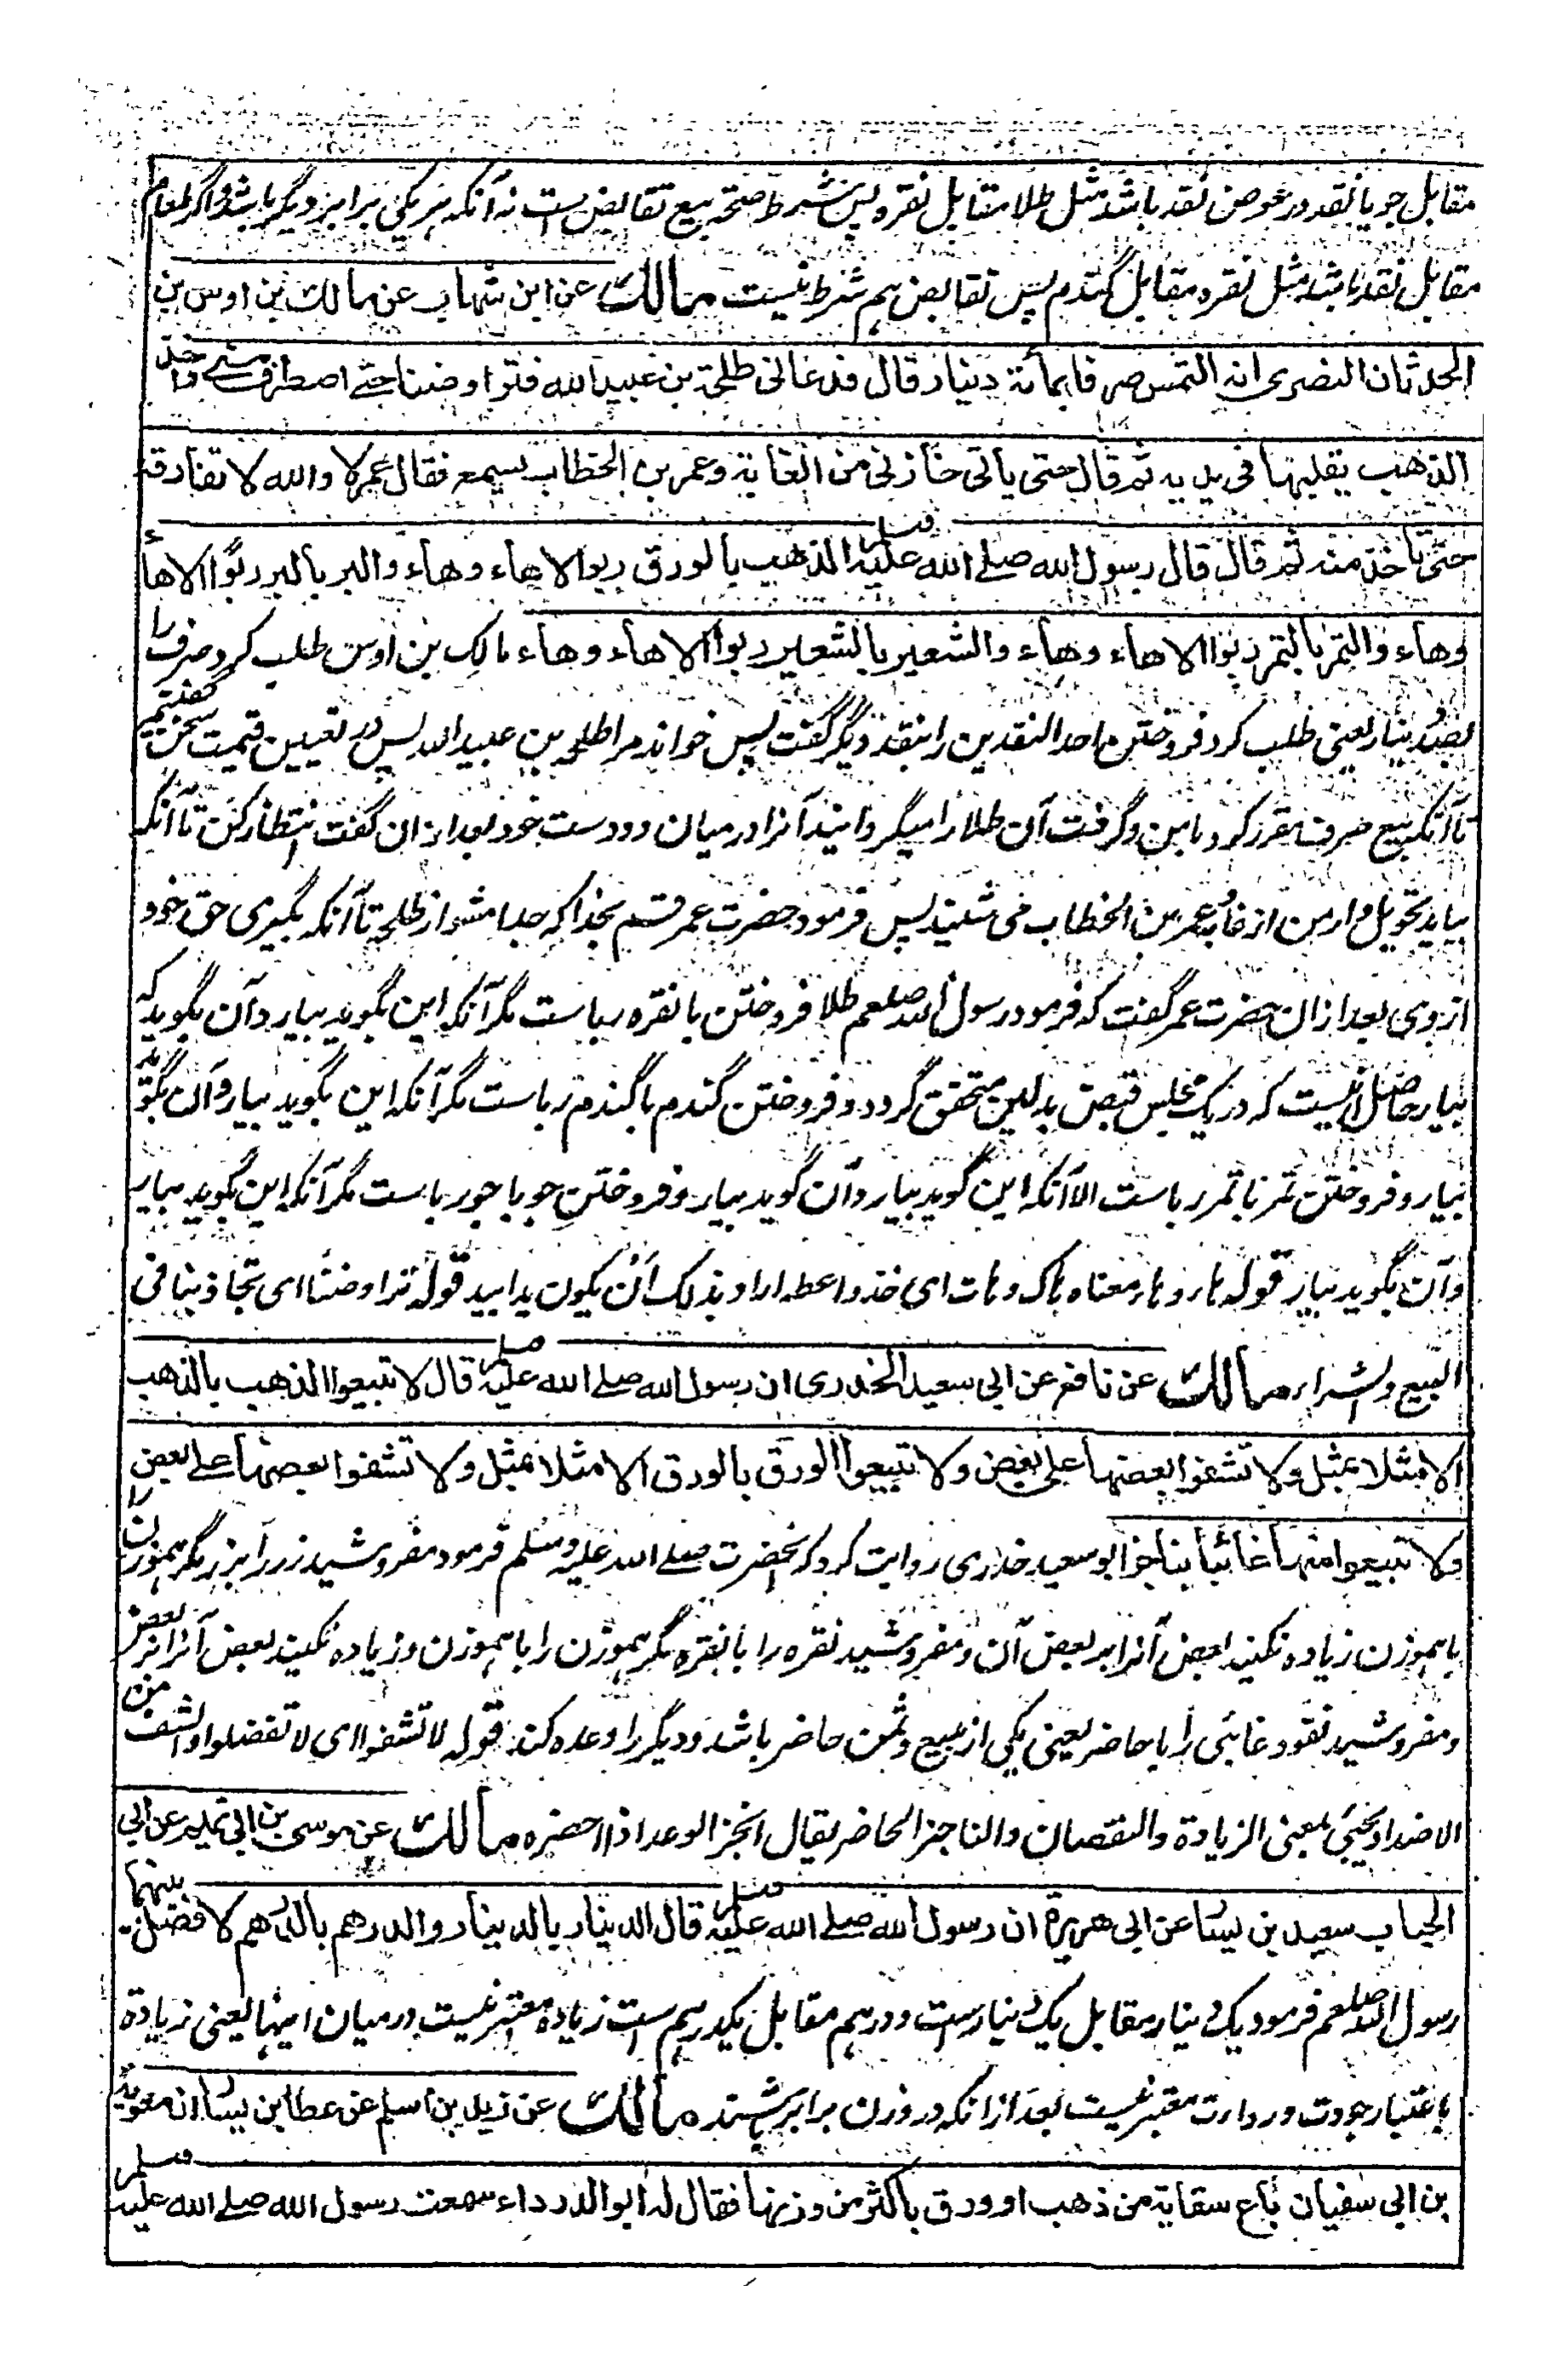 مقابل جو یا نقد در عوض نقد باشد مثل طلا مقابل نقره پس شرط صحة بیع تقابض ست نه آنکه هر یکی برابر دیگر باشد و اگر طعام
مقابل نقد باشد مثل نقره مقابل گندم پس تقابض هم شرط نیست مالك عن ابن شهاب عن مالك بن اوس بن
الحدثان النصری انه التمس صرفا بمأئة دینار قال فدعانی طلحة بن عبید الله فتراوضنا حتے اصطرف منے واخذ
الذهب یقلبها فی یدیه ثم قال حتی یاتی خازنی من الغابة وعمر بن الخطاب یسمع فقال عمر لا والله لا تفارقه
حتی تاخذ منه ثم قال قال رسول الله صلے الله علیه وسلم الذهب بالورق ربوا الا هاء وهاء والبر بالبر ربوا الا هاء
وهاء والتمر بالتمر ربوا الا هاء وهاء والشعیر بالشعیر ربوا الا هاء وهاء مالک بن اوس طلب کرد صرف را
بصد دینار یعنی طلب کرد فروختن احد النقدین را بنقد دیگر گفت پس خواند مرا طلحه بن عبید الله پس در تعیین قیمت سخن گفتیم
تا آنکه بیع صرف مقرر کرد با من و گرفت آن طلا را میگردانید آنرا در میان دو دست خود بعد ازان گفت انتظار کن تا آنکه
بیاید تحویل دار من از غابه و عمر بن الخطاب می شنید پس فرمود حضرت عمر قسم بخدا که جدا مشو از طلحه تا آنکه بگیری حق خود
از وی بعد ازان حضرت عمر گفت که فرمود رسول الله صلعم طلا فروختن با نقره رباست مگر آنکه این بگوید بیار و آن بگوید که
بیار حاصل آنست که در یک مجلس قبض بدلین متحقق گردد و فروختن گندم با گندم رباست مگر آنکه این بگوید بیار و آن بگوید
بیار و فروختن تمر با تمر رباست الا آنکه این گوید بیار و آن گوید بیار و فروختن جو با جو رباست مگر آنکه این بگوید بیار
و آن بگوید بیار قوله هاء و هاء معناه هاک و هات ای خذ و اعط اراد بذلک ان یکون یدا بید قوله تراوضنا ای تجاذبنا فی
البیع والشراء مالك عن نافع عن ابی سعید الخدری ان رسول الله صلے الله علیه وسلم قال لا تبیعوا الذهب بالذهب
الا مثلا بمثل ولا تشفوا بعضها علی بعض ولا تبیعوا الورق بالورق الا مثلا بمثل ولا تشفوا بعضها علے بعض
ولا تبیعوا منها غائبا بناجز ابو سعید خدری روایت کرد که آنحضرت صلے الله علیه وسلم فرمود مفروشید زر را بزر مگر هموزن را
با هموزن زیاده نکنید بعض آنرا بر بعض آن و مفروشید نقره را با نقره مگر هموزن را با هموزن و زیاده نکنید بعض آنرا بر بعض
و مفروشید نقود غائبی را با حاضر یعنی یکی از مبیع و ثمن حاضر باشد و دیگر را وعده کند قوله لا تشفوا ای لا تفضلوا والشف من
الاضداد یجیئ بمعنی الزیادة والنقصان والناجز الحاضر یقال انجز الوعد اذا احضره مالك عن موسی بن ابی تمیم عن ابی
الحباب سعید بن یسار عن ابی هریرة ان رسول الله صلے الله علیه وسلم قال الدینار بالدینار والدرهم بالدرهم لا فضل بینهما
رسول الله صلعم فرمود یک دینار مقابل یک دینارست و درهم مقابل یکدرهم ست زیاده معتبر نیست در میان اینها یعنی زیادة
باعتبار جودت و ردائت معتبر نیست بعد ازانکه در وزن برابر باشند مالك عن زید بن اسلم عن عطا بن یسار ان معویة
بن ابی سفیان باع سقایة من ذهب او ورق باکثر من وزنها فقال له ابو الدرداء سمعت رسول الله صلے الله علیه وسلم